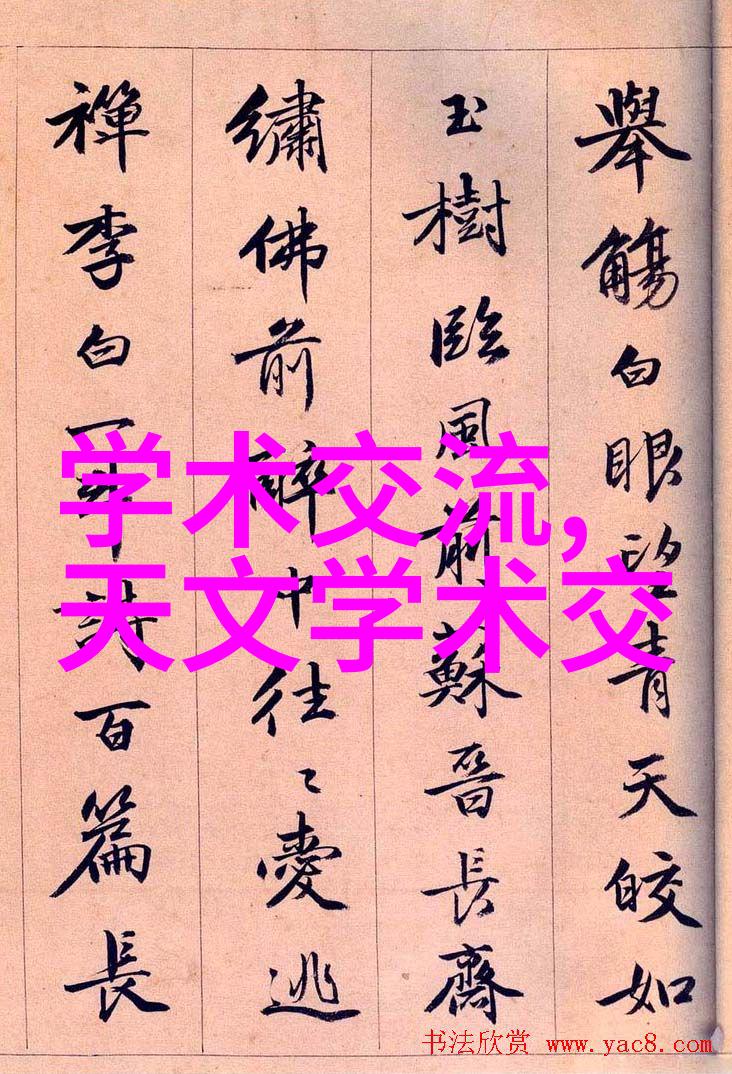 舉觴白眼望青天皎如
玉樹臨風前蘇晉長齋
繡佛前醉中往〻愛逃
禪李白一斗詩百篇長
学术交流,
天文学术交
书法欣赏 www.yac8.com